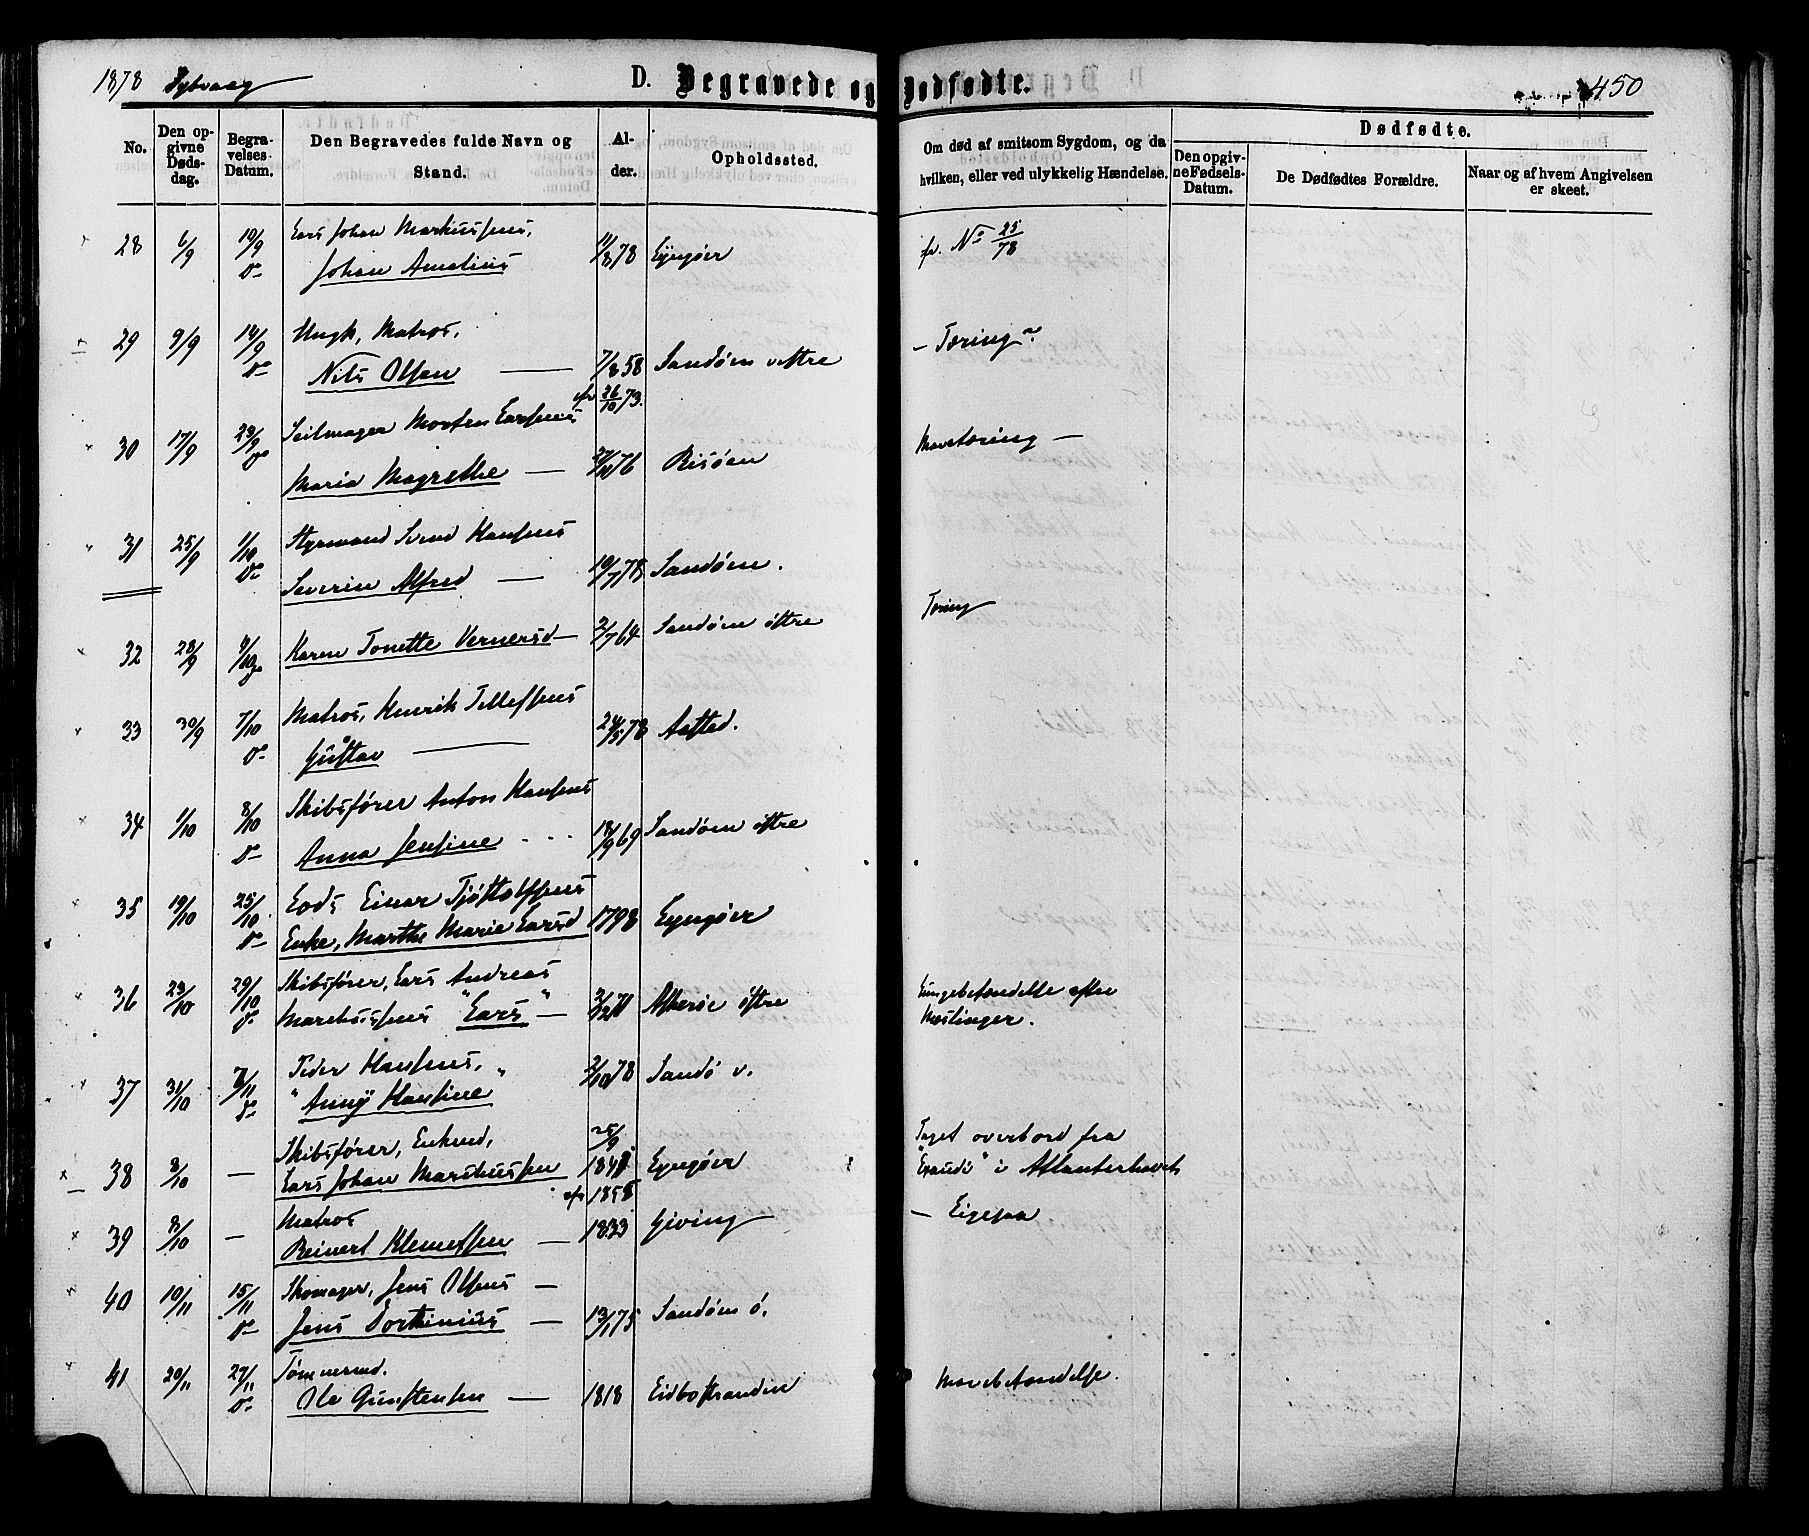 1878 Dybvaag D. Begravede og Dødfødte. 450
No. Den opgivne Dødsdag. Begravelses Datum. Den Begravedes fulde Navn og Stand. Alder. Opholdssted. Om død af smitsom Sygdom, og da hvilken, eller ved ulykkelig Hændelse. Dødfødte.
Den opgivne Fødsels-Datum. De Dødfødtes Forældre. Naar og af hvem Angivelsen er skeet.
28 6/9 10/9 Lars Johan Markussens,
Johan Amalius 11/8 78 Lyngøer fr. No 25/78
29 9/9 14/9 Ungk, Matros,
Nils Olsen — 7/8 58 Sandøen vestre — Tæring
26/10 73.
30 17/9 23/9 Seilmager Morten Larsens
Maria Magrethe — 27/11 76 Risøen Mavetæring —
31 25/9 1/10 Styrmand Svend Hansens
Severin Alfred — 19/7 78 Sandøen.
32 28/9 Karen Tonette Vernersd — 2/7 64 Sandøen østre Tæring
33 30/9 7/10 Matros, Henrik Tellefsens
Gustav — 24/5 78 Aasted.
34 1/10 8/10 Skibsfører Anton Hansens
Anna Jensine 18/9 69 Sandøen østre
35 19/10 25/10 Lods Einar Tjøstolfsens
Enke, Marthe Marie Larsd 1798 Lyngøer
36 23/10 29/10 Skibsfører, Lars Andreas
Marcussens "Lars" — Askerøe østre Lungebetændelse efter
Meslinger.
37 31/10 7/11 Peder Hansens,
"Anny Hansine" 2/10 78 Sandø v.
38 8/10 — Skibsfører, Enkmd, 25/9
Lars Johan Marcussen 1848 Lyngøer Taget overbord fra
"Exaudi" i Atlanterhavet
39 8/10 — Matros
Reinert Klemetsen — 1833 Giving — Ligesaa
40 10/11 15/11 Skomager, Jens Olsens —
Jens Torkinius — 13/1 75 Sandøen ø.
41 20/11 27/11 Tømmermd.
Ole Gunstensen — 1818 Eidbostranden Mavebetændelse.